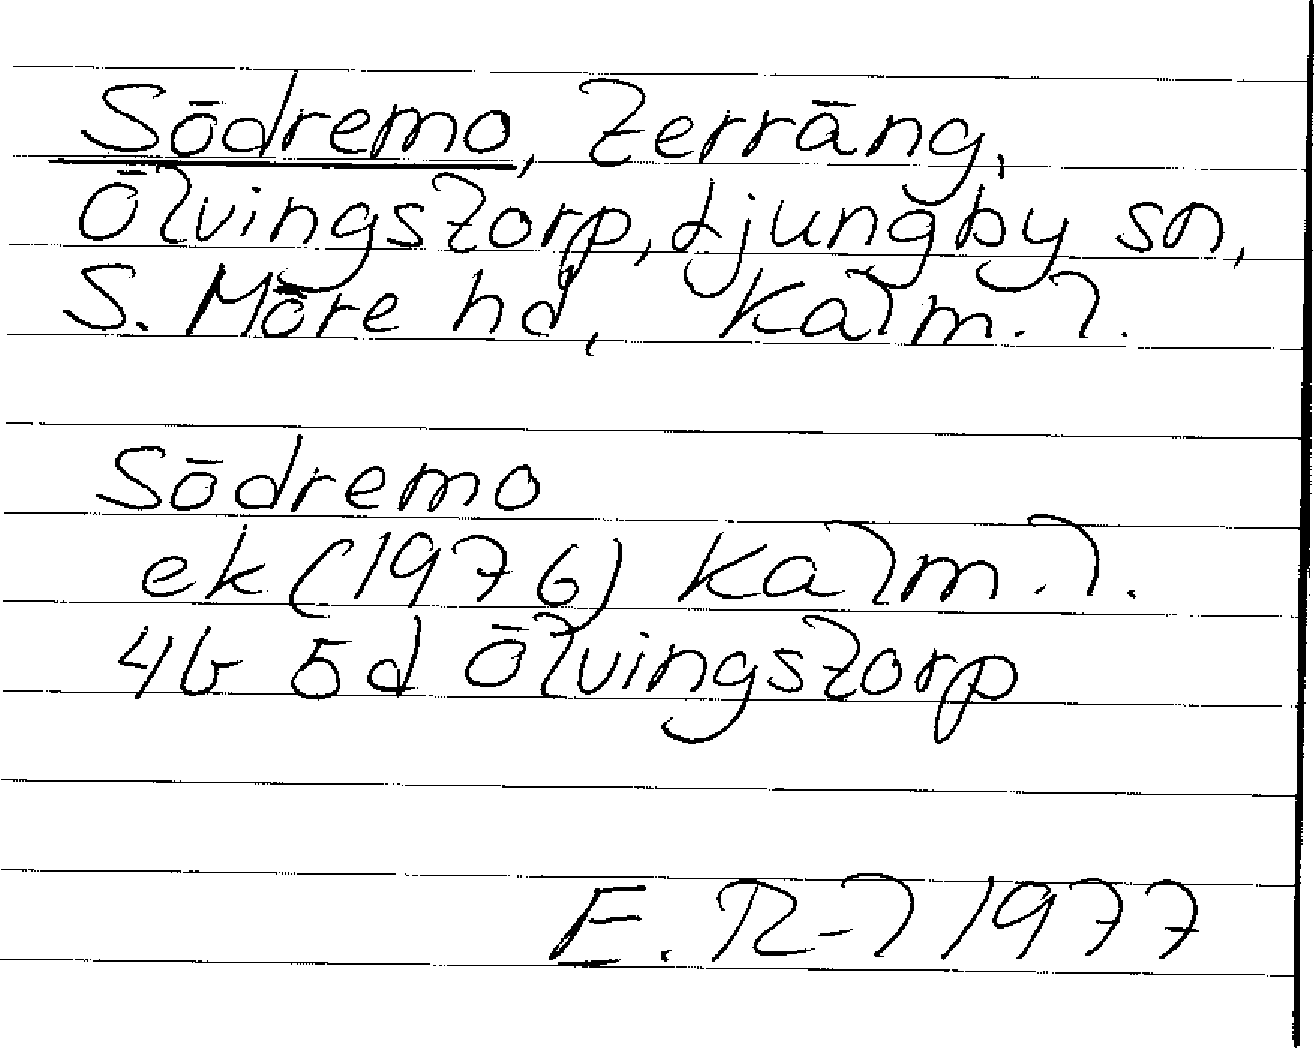 Södremo, terräng,
Ölvingstorp, Ljungby sn,
S. Möre hd, Kalm. l.
Södremo
ek (1976) Kalm. l.
4G 5d Ölvingstorp
E. R-l 1977